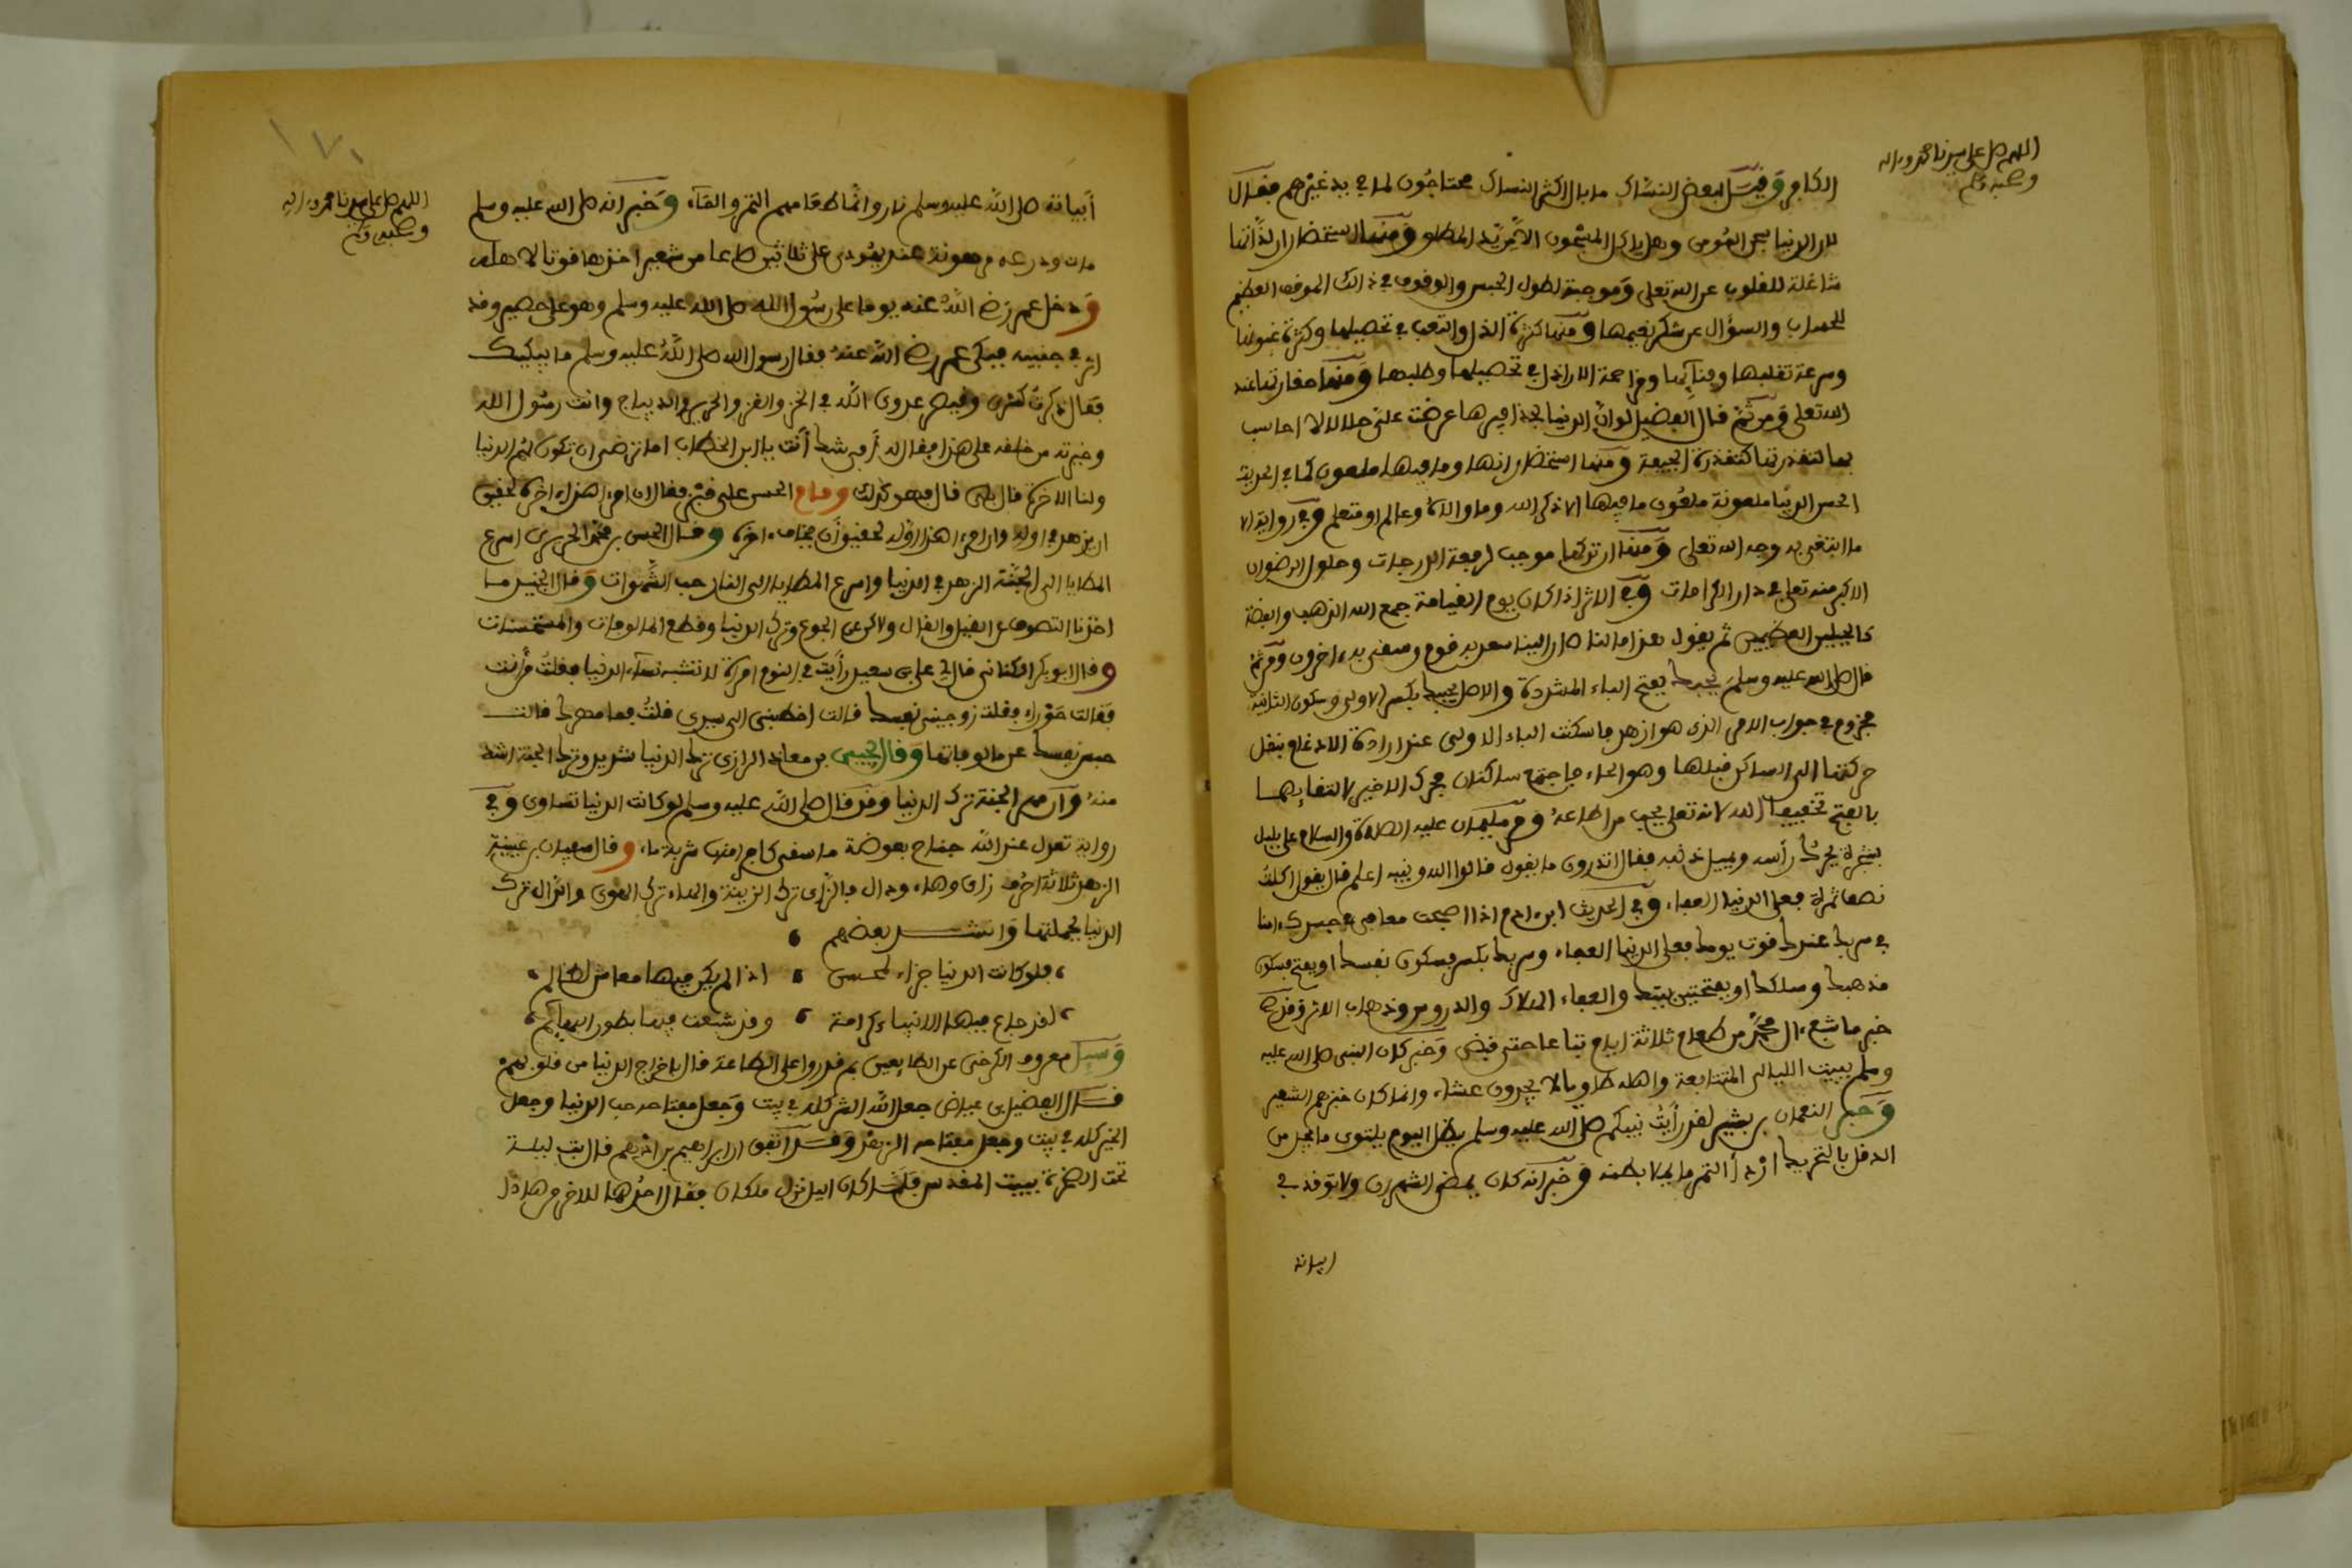 اللهم صل على سيدنا محمد وءاله
وصحبه وسلم
الكافر وقيل لبعض النساك ما بال اكثر النساك محتاجون لما في يد غيرهم فقال
لان الدنيا سجن المومن وهل ياكل المسجون الا من يد المطلق ومنها استحضار ان لذاتها
شاغلة للقلوب عن الله تعلى وموجبة لطول الحبس والوقوف في ذالك الموقف العظيم
للحساب والسؤال عن شكر نعيمها ومنها كثرة الذل والتعب في تحصيلها وكثرة غبونها
وسرعة تقلبها وفنائها ومزاحمة الاراذل في تحصيلها وطلبها ومنها حقارتها عند
الله تعلى ومن ثم قال الفضيل لو ان الدنيا بحذافيرها عرضت على حلالا لا احاسب
بها لتقذرتها كتقذرة الجيفة ومنها استحضار انها وما فيها ملعون كما في الحديث
الحسن الدنيا ملعونة ملعون ما فيها الا ذكر الله وما والاه وعالم او متعلم وفي رواية الا
ما ابتغي به وجه الله تعلى ومنها ان تركها موجب لرفعة الدرجات وحلول الرضوان
الاكبر منه تعلى في دار الكرامات وفي الاثر اذا كان يوم القيامة جمع الله الذهب والفضة
كالجبلين العظيمين ثم يقول هذا مالنا صار الينا سعد به قوم وشقي به ءاخرون ومن ثم
قال صلى الله عليه وسلم يحبك بفتح الباء المشددة والاصل يحببك بكسر الاولى وسكون الثانية
مجزوم في جواب الامر الذي هو ازهد فاسكنت الباء الاولى عند ارادة الادغام بنقل
حركتها الى الساكن قبلها وهو الحاء فاجتمع ساكنان فحرك الاخير لالتقائهما
بالفتح تخفيفا الله لانه تعلى يحب من اطاعه ومر سليمان عليه الصلاة والسلام على بلبل
بشجرة يحرك رأسه ويميل ذنبه فقال اتدرون ما يقول قالوا الله ونبيه اعلم قال يقول اكلت
نصف تمرة فعلى الدنيا العفاء وفي الحديث ابن ادم اذا اصبحت معافى في جسدك ءامنا
في سربك عندك قوت يومك فعلى الدنيا العفاء وسربك بكسر فسكون نفسك او بفتح فسكون
مذهبك ومسلكك او بفتحتين بيتك والعفاء الهلاك والدروس وذهاب الاثر وقد صح
خبر ما شبع ءال محمد من طعام ثلاثة ايام تباعا حتى قبض وخبر كان النبي صلى الله عليه
وسلم يبيت الليالي المتتابعة واهله طاويا لا يجدون عشاء وانما كان خبزهم الشعير
وخبر النعمان بن بشير لقد رأيت نبيكم صلى الله عليه وسلم يظل اليوم يلتوي ما يجد من
الدقل بالتحريك اردأ التمر ما يملا بطنه وخبر انه كان يمضي الشهران ولا توقد في
ابياته
١٧١
اللهم صل على سيدنا محمد وءاله
وصحبه وسلم
أبياته صلى الله عليه وسلم نار وانما طعامهم التمر والماء وخبر انه صلى الله عليه وسلم
مات ودرعه مرهونة عند يهودي على ثلاثين صاعا من شعير اخذها قوتا لاهله
ودخل عمر رضي الله عنه يوما على رسول الله صلى الله عليه وسلم وهو على حصير وقد
اثر في جنبيه فبكى عمر رضي الله عنه فقال رسول الله صلى الله عليه وسلم ما يبكيك
فقال ذكرت كسرى وقيصر عدوي الله في الخز والقز والحرير والديباج وانت رسول الله
وخيرته من خلقه على هذا فقال له أفي شك أنت يا ابن الخطاب اما ترضى ان تكون لهم الدنيا
ولنا الاخرة قال بلى قال فهو كذلك وقام الحسن على قبر فقال ان امرا هذا ءاخره لحقيق
ان يزهد في اوله وان امرا هذا اوله لحقيق أن يخاف ءاخره وقال الحسن بن محمد الحريري اسرع
المطايا الى الجنة الزهد في الدنيا واسرع المطايا الى النار حب الشهوات وقال الجنيد ما
اخذنا التصوف عن القيل والقال ولاكن عن الجوع وترك الدنيا وقطع المالوفات والمستحسنات
وقال ابو بكر الكتاني قال لي علي بن سعيد رأيت في النوم امرأة لا تشبه نساء الدنيا فقلت من أنت
فقالت حوراء فقلت زوجيني نفسك قالت اخطبني الى سيدي قلت فما مهرك قالت
حبس نفسك عن مالوفاتها وقال يحيى بن معاذ الرازي ترك الدنيا شديد وترك الجنة اشد
منه وان مهر الجنة ترك الدنيا وقد قال صلى الله عليه وسلم لو كانت الدنيا تساوي وفي
رواية تعدل عند الله جناح بعوضة ما سقى كافرا منها شربة ماء وقال سفيان بن عيينة
الزهد ثلاثة احرف زاي وهاء ودال فالزاي ترك الزينة والهاء ترك الهوى والدال ترك
الدنيا بجملتها وانشد بعضهم
فلو كانت الدنيا جزاء لمحسن اذا لم يكن فيها معاش لظالم
لقد جاع فيها الانبياء كرامة وقد شبعت فيها بطون البهائم
وسيل معروف الكرخي عن الطايعين بم قدروا على الطاعة قال باخراج الدنيا من قلوبهم
قال الفضيل بن عياض جعل الله الشر كله في بيت وجعل مفتاحه حب الدنيا وجعل
الخير كله في بيت وجعل مفتاحه الزهد وقد اتفق ان ابراهيم بن ادهم قال بت ليلة
تحت الصخرة ببيت المقدس فلما كان الليل نزل ملكان فقال احدهما للاخر من هاذا